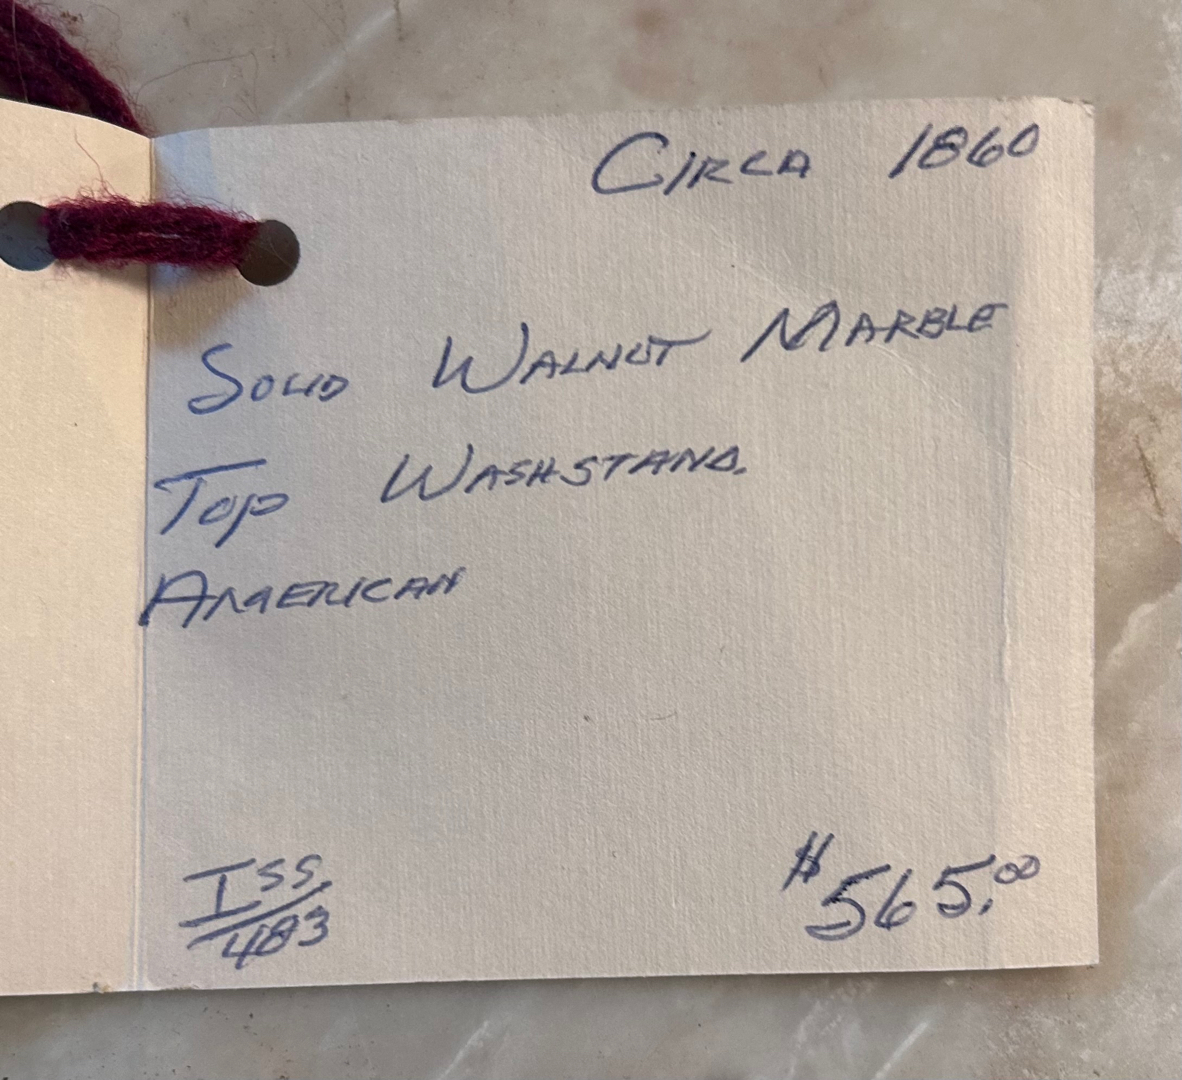 CIRCA 1860
SOLID WALNUT MARBLE
TOP WASHSTAND.
AMERICAN
ISS/483
$565.00